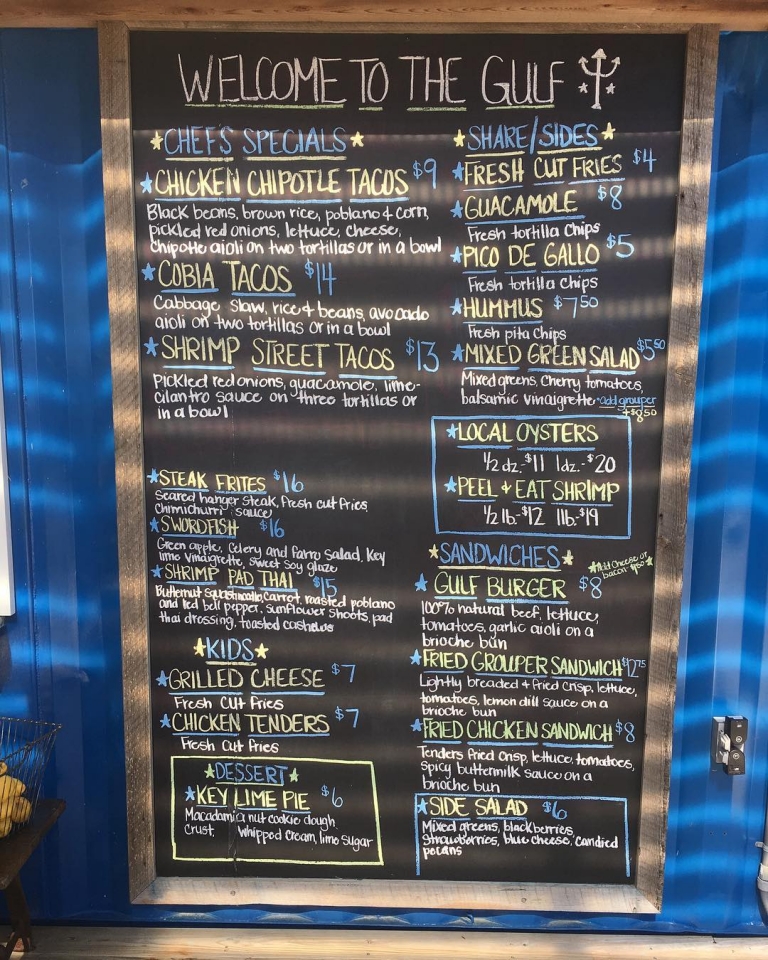 WELCOME TO THE GULF
CHEF'S SPECIALS
CHICKEN CHIPOTLE TACOS $9
Black beans, brown rice, poblano & corn,
pickled red onions, lettuce, cheese,
chipotle aioli on two tortillas or in a bowl
COBIA TACOS $14
Cabbage slaw, rice & beans, avocado
aioli on two tortillas or in a bowl
SHRIMP STREET TACOS $13
Pickled red onions, guacamole, lime-
cilantro sauce on three tortillas or
in a bowl
STEAK FRITES $16
Seared hanger steak, fresh cut fries,
Chimichurri sauce
SWORDFISH $16
Green apple, celery and farro salad, Key
lime vinaigrette, sweet soy glaze
SHRIMP PAD THAI $15
Butternut squash noodle, carrot, roasted poblano
and red bell pepper, sunflower shoots, pad
thai dressing, toasted cashews
KIDS
GRILLED CHEESE $7
Fresh Cut Fries
CHICKEN TENDERS $7
Fresh Cut Fries
DESSERT
KEY LIME PIE $6
Macadamia nut cookie dough
crust, whipped cream, lime sugar
SHARE/SIDES
FRESH CUT FRIES $4
GUACAMOLE $8
Fresh tortilla chips
PICO DE GALLO $5
Fresh tortilla chips
HUMMUS $7.50
Fresh pita chips
MIXED GREEN SALAD $5.50
Mixed greens, cherry tomatoes,
balsamic vinaigrette *add grouper
+$8.50
LOCAL OYSTERS
1/2 dz.-$11 1dz.-$20
PEEL & EAT SHRIMP
1/2 lb.-$12 1lb.-$19
SANDWICHES
*Add cheese or
bacon $1.50
GULF BURGER $8
100% natural beef, lettuce,
tomatoes, garlic aioli on a
brioche bun
FRIED GROUPER SANDWICH $12.75
Lightly breaded & fried crisp, lettuce,
tomatoes, lemon dill sauce on a
brioche bun
FRIED CHICKEN SANDWICH $8
Tenders fried crisp, lettuce, tomatoes,
spicy buttermilk sauce on a
brioche bun
SIDE SALAD $6
Mixed greens, blackberries,
strawberries, blue cheese, candied
pecans